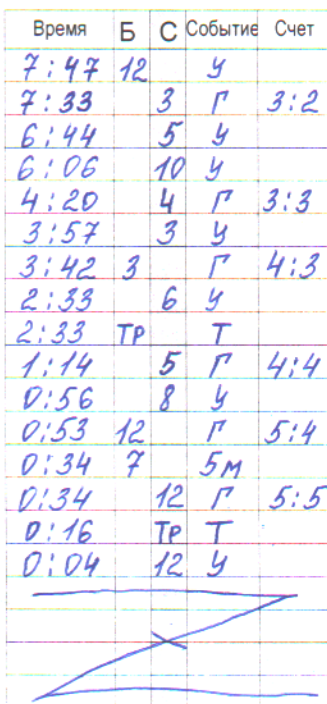 Время Б С Событие Счет
7:47 12 У
7:33 3 Г 3:2
6:44 5 У
6:06 10 У
4:20 4 Г 3:3
3:57 3 У
3:42 3 Г 4:3
2:33 6 У
2:33 ТР Т
1:14 5 Г 4:4
0:56 8 У
0:53 12 Г 5:4
0:34 7 5м
0:34 12 Г 5:5
0:16 ТР Т
0:04 12 У